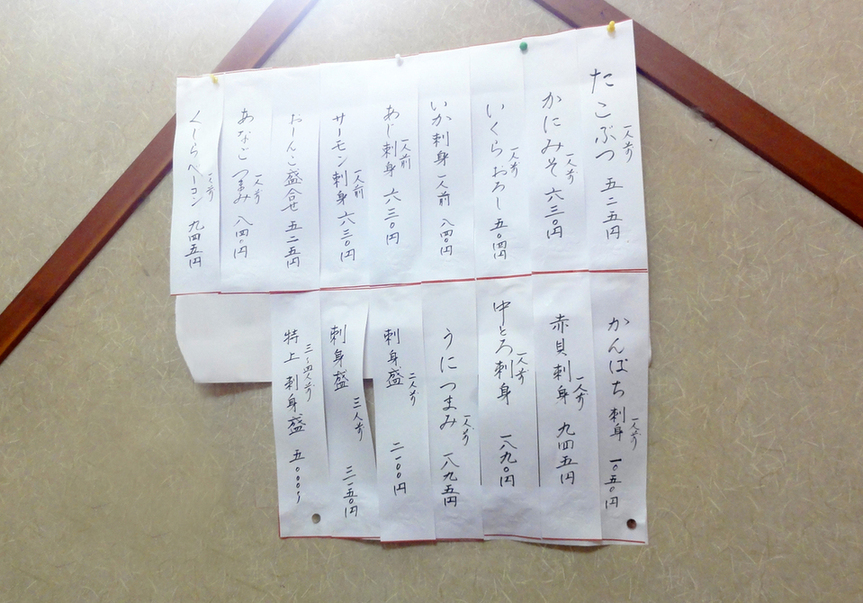 たこぶつ 一人前 五二五円
かにみそ 一人前 六三〇円
いくらおろし 一人前 五〇四円
いか刺身 一人前 八四〇円
あじ刺身 一人前 六三〇円
サーモン刺身 一人前 六三〇円
おしんこ盛合せ 五二五円
あなごつまみ 一人前 八四〇円
くじらベーコン 一人前 九四五円
かんぱち刺身 一人前 一〇五〇円
赤貝刺身 一人前 九四五円
中とろ刺身 一人前 一八九〇円
うにつまみ 一人前 一八九五円
刺身盛 二人前 二一〇〇円
刺身盛 三人前 三一五〇円
特上刺身盛 三〜四人前 五〇〇〇円